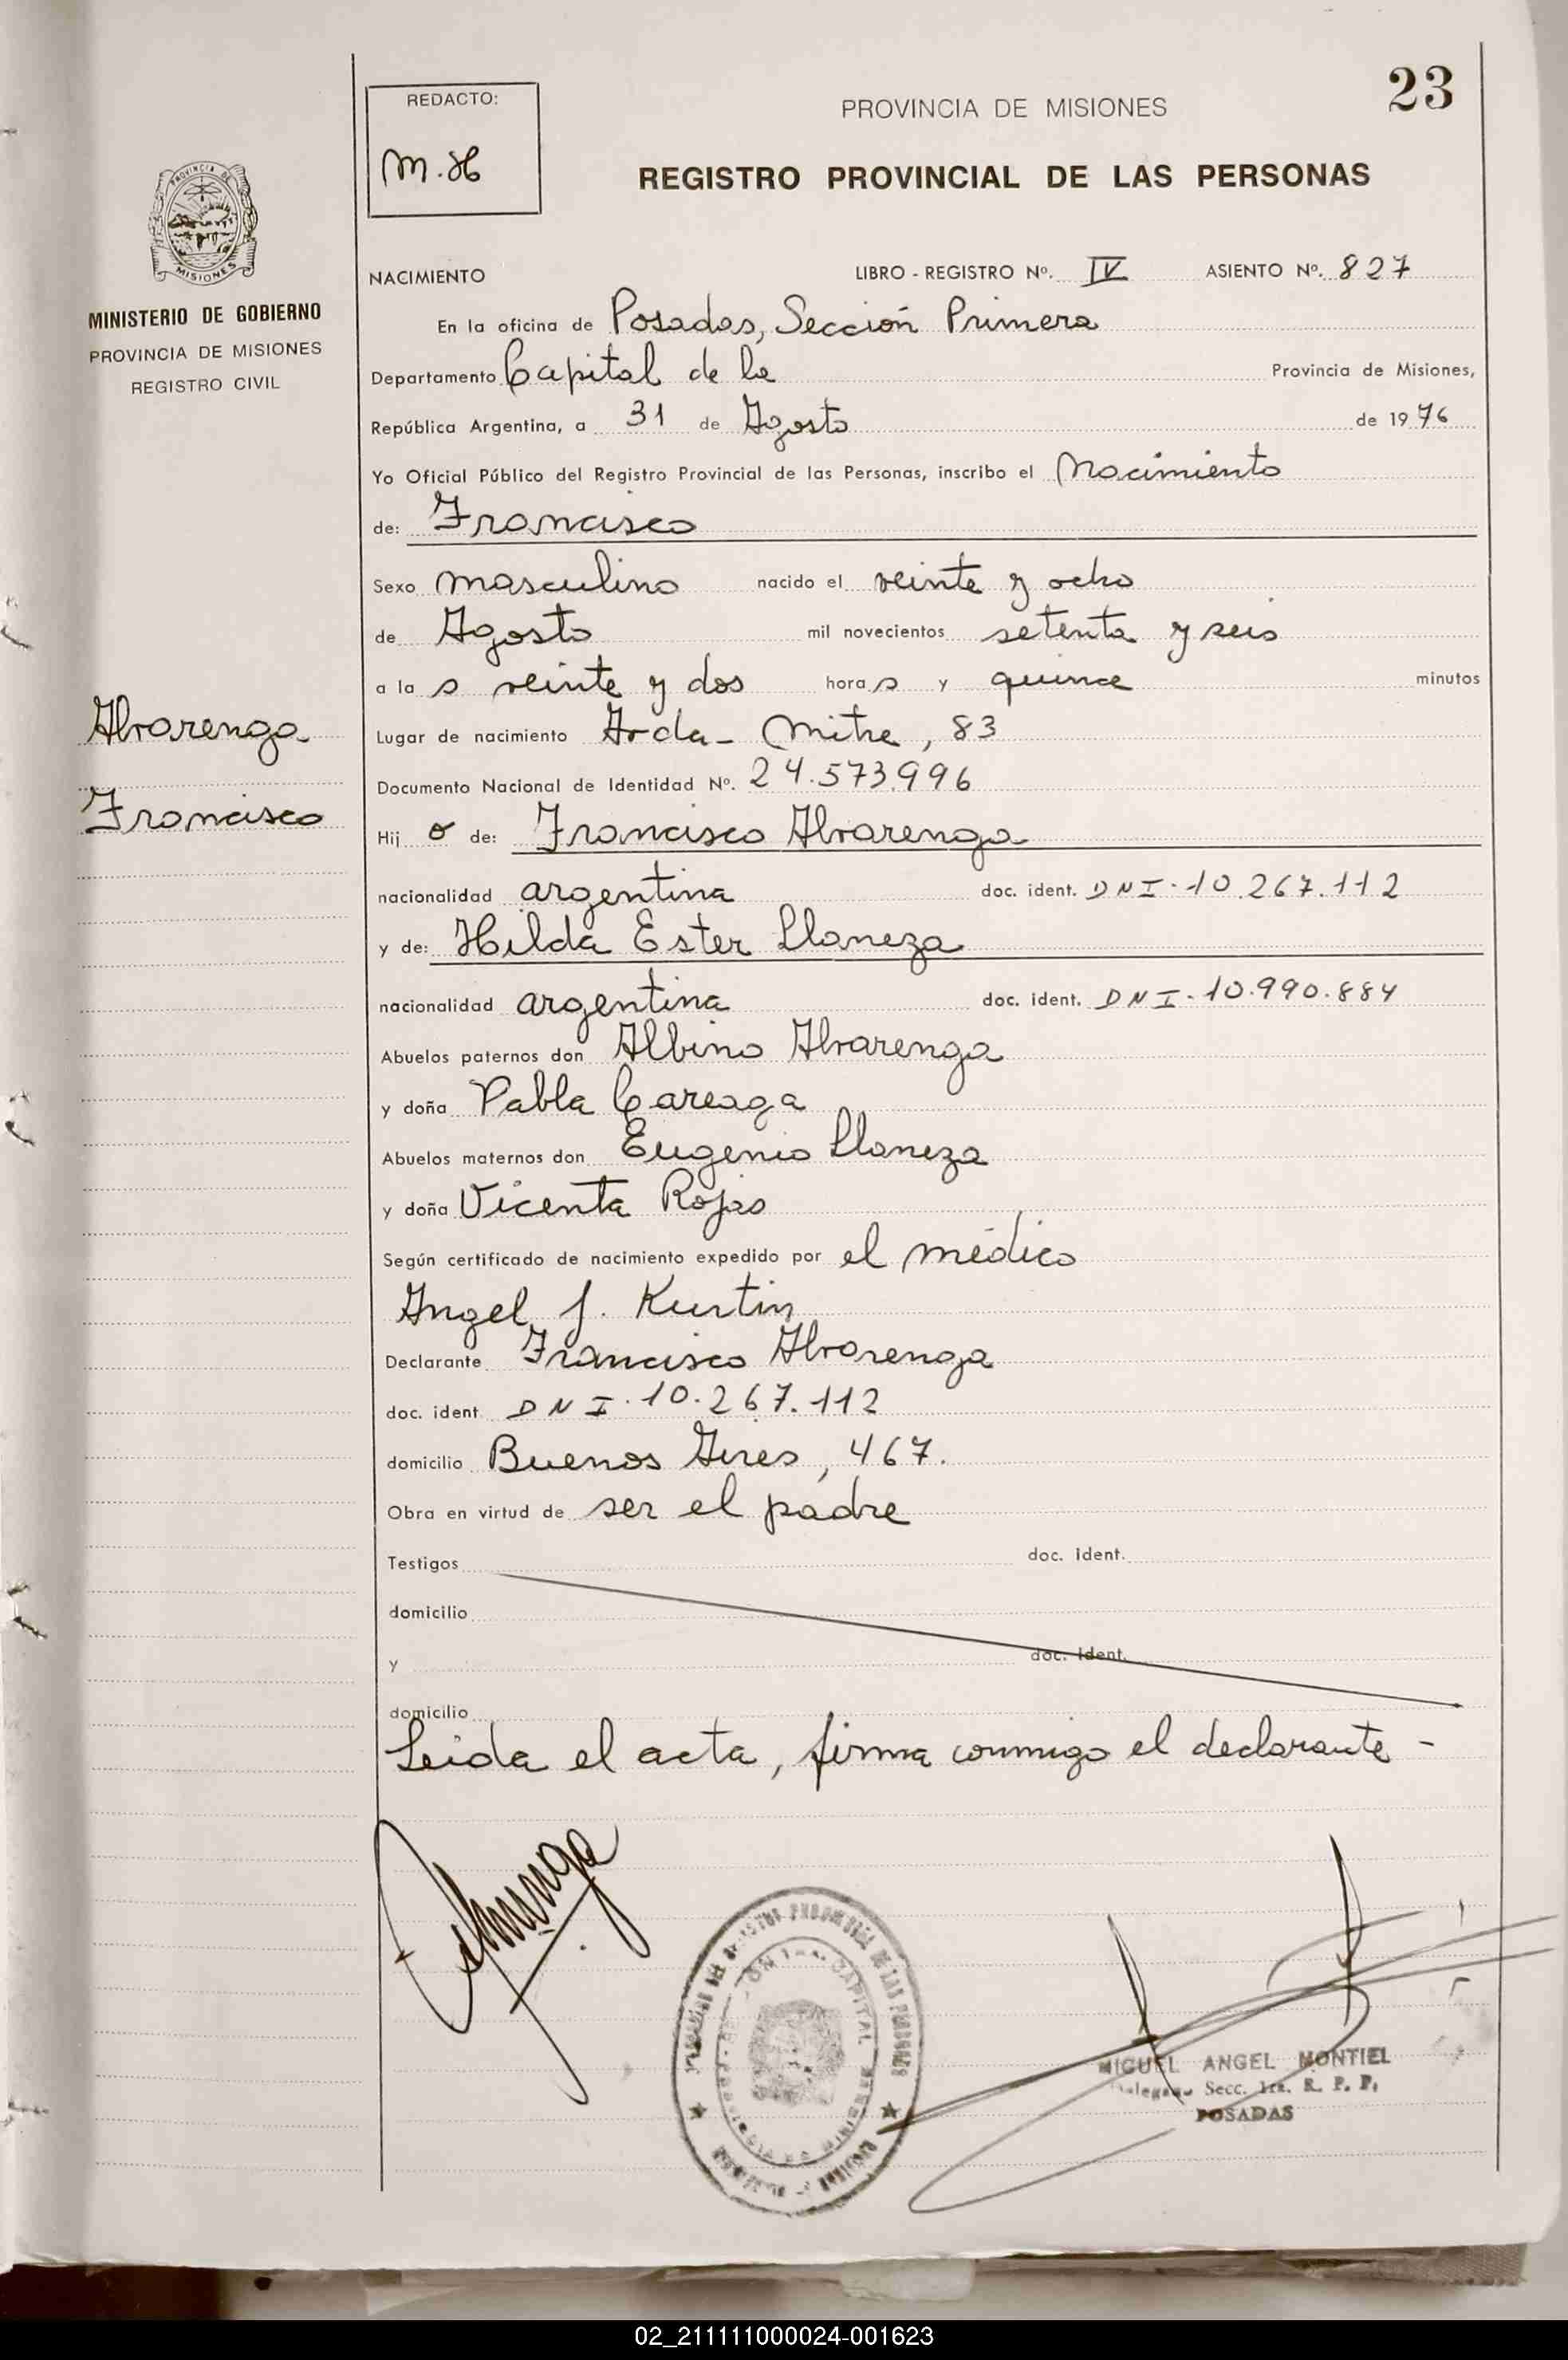 23
REDACTO:
M.H
PROVINCIA DE MISIONES
REGISTRO PROVINCIAL DE LAS PERSONAS
PROVINCIA DE
MISIONES
MINISTERIO DE GOBIERNO
PROVINCIA DE MISIONES
REGISTRO CIVIL
Alvarenga
Francisco
NACIMIENTO LIBRO - REGISTRO Nº. IV ASIENTO Nº. 827
En la oficina de Posadas, Sección Primera
Departamento Capital de la Provincia de Misiones,
República Argentina, a 31 de Agosto de 1976
Yo Oficial Público del Registro Provincial de las Personas, inscribo el Nacimiento
de: Francisco
Sexo masculino nacido el veinte y ocho
de Agosto mil novecientos setenta y seis
a la s veinte y dos hora s y quince minutos
Lugar de nacimiento Avda- Mitre, 83
Documento Nacional de Identidad Nº. 24.573.996
Hij o de: Francisco Alvarenga
nacionalidad argentina doc. ident. DNI. 10.267.112
y de: Hilda Ester Llaneza
nacionalidad argentina doc. ident. DNI. 10.990.884
Abuelos paternos don Albino Alvarenga
y doña Pabla Careaga
Abuelos maternos don Eugenio Llaneza
y doña Vicenta Rojas
Según certificado de nacimiento expedido por el médico
Angel J. Kurtin
Declarante Francisco Alvarenga
doc. ident. DNI. 10.267.112
domicilio Buenos Aires, 467.
Obra en virtud de ser el padre
Testigos doc. ident.
domicilio
y doc. ident.
domicilio
Leida el acta, firma conmigo el declarante -
CAPITAL
MIGUEL ANGEL MONTIEL
Secc. 1ra. R. P. P.
POSADAS
02_211111000024-001623